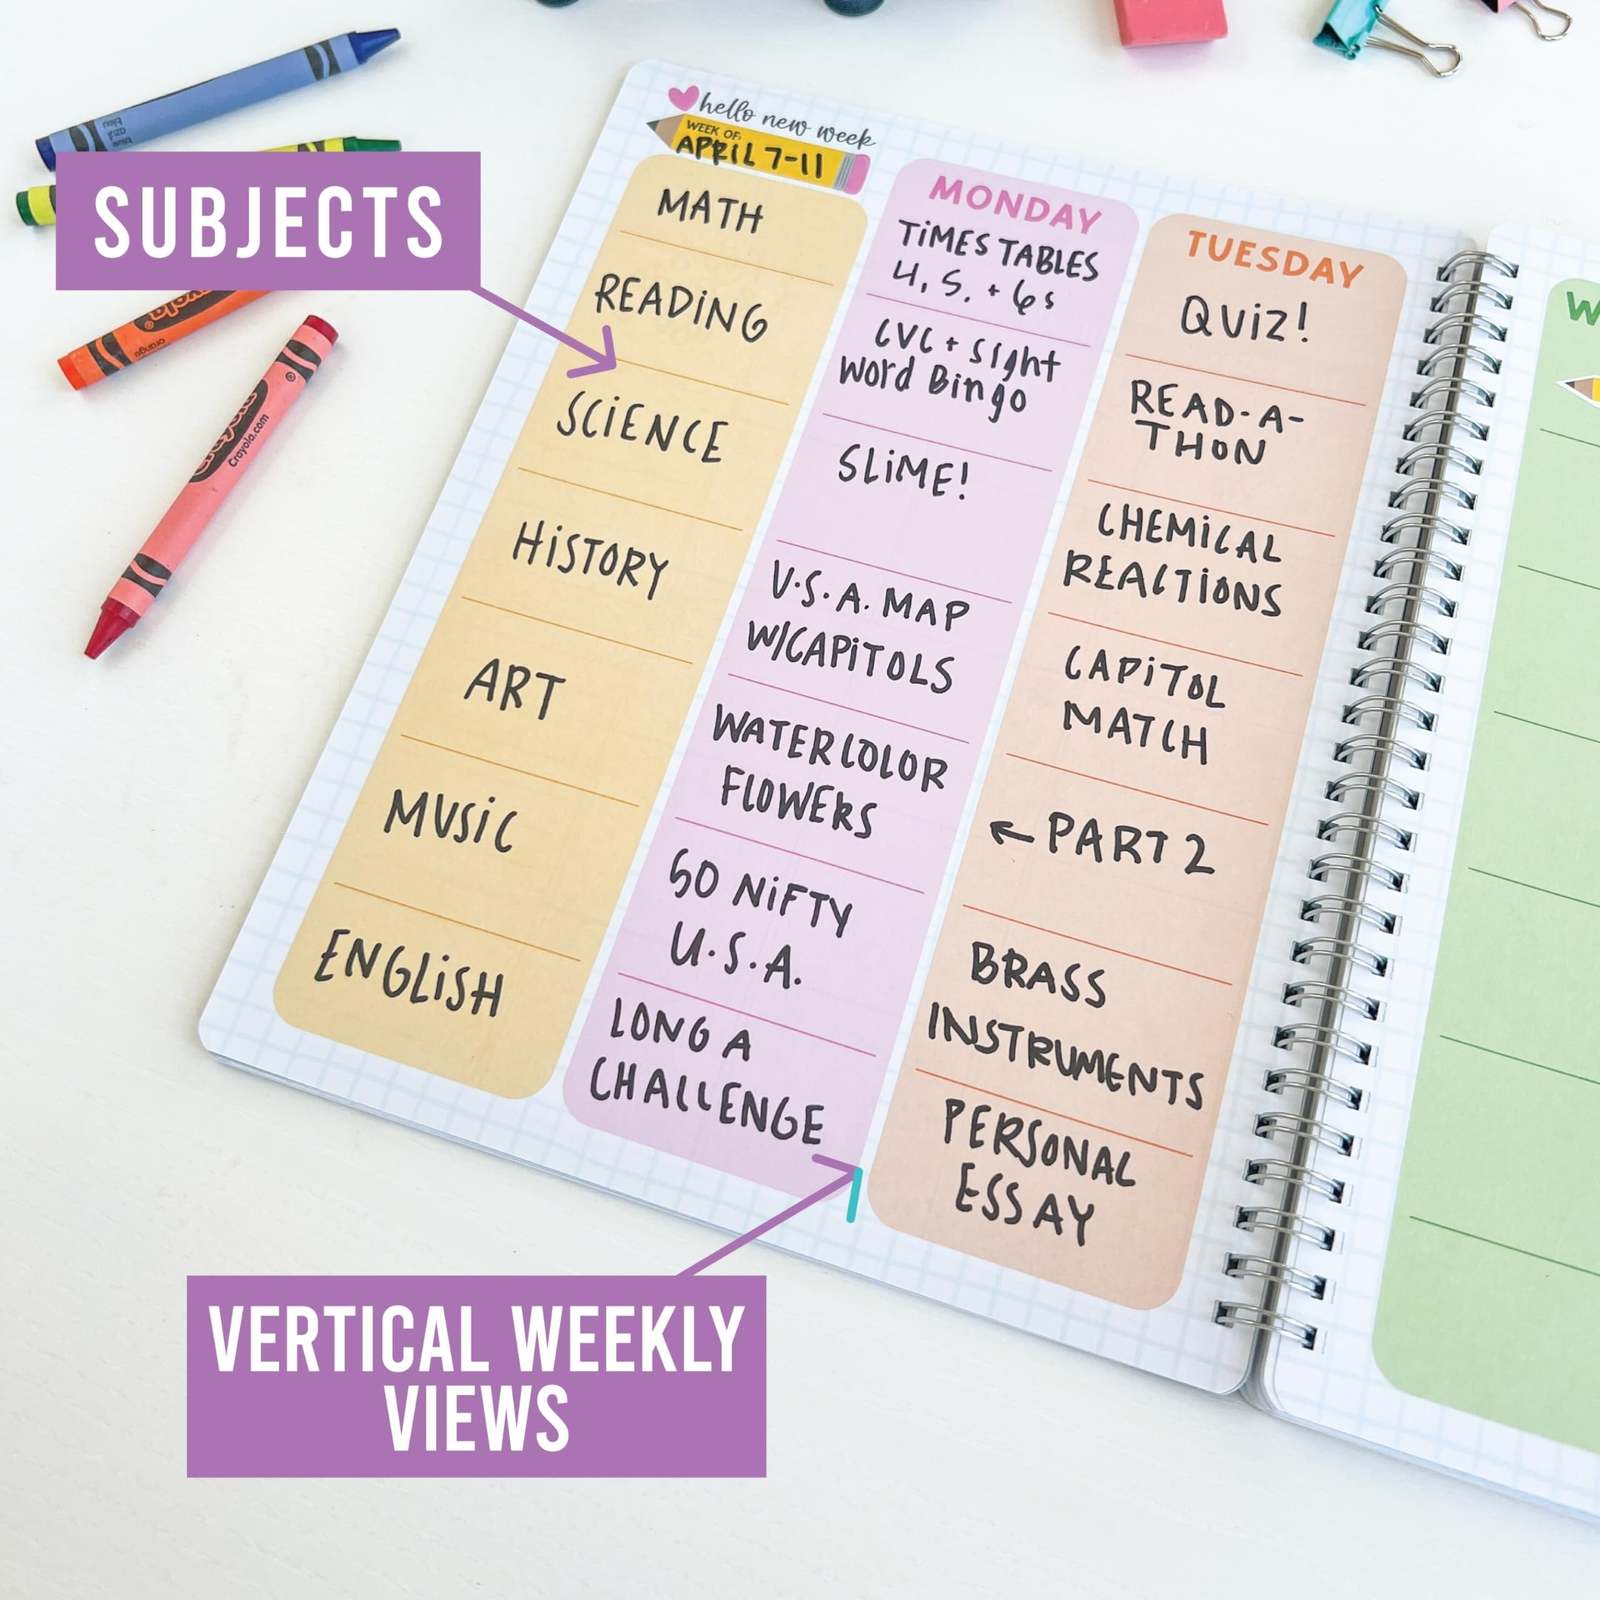 hello new week
WEEK OF:
APRIL 7-11
SUBJECTS
MATH
READING
SCIENCE
HISTORY
ART
MUSIC
ENGLISH
MONDAY
TIMES TABLES
4, 5, + 6s
CVC + Sight
Word Bingo
SLIME!
U.S.A. MAP
W/CAPITOLS
WATERCOLOR
FLOWERS
50 NIFTY
U.S.A.
LONG A
CHALLENGE
TUESDAY
QUIZ!
READ-A-
THON
CHEMICAL
REACTIONS
CAPITOL
MATCH
← PART 2
BRASS
INSTRUMENTS
PERSONAL
ESSAY
W
VERTICAL WEEKLY
VIEWS
blue
azul
bleu
Crayola
orange
Crayola
Crayola.com